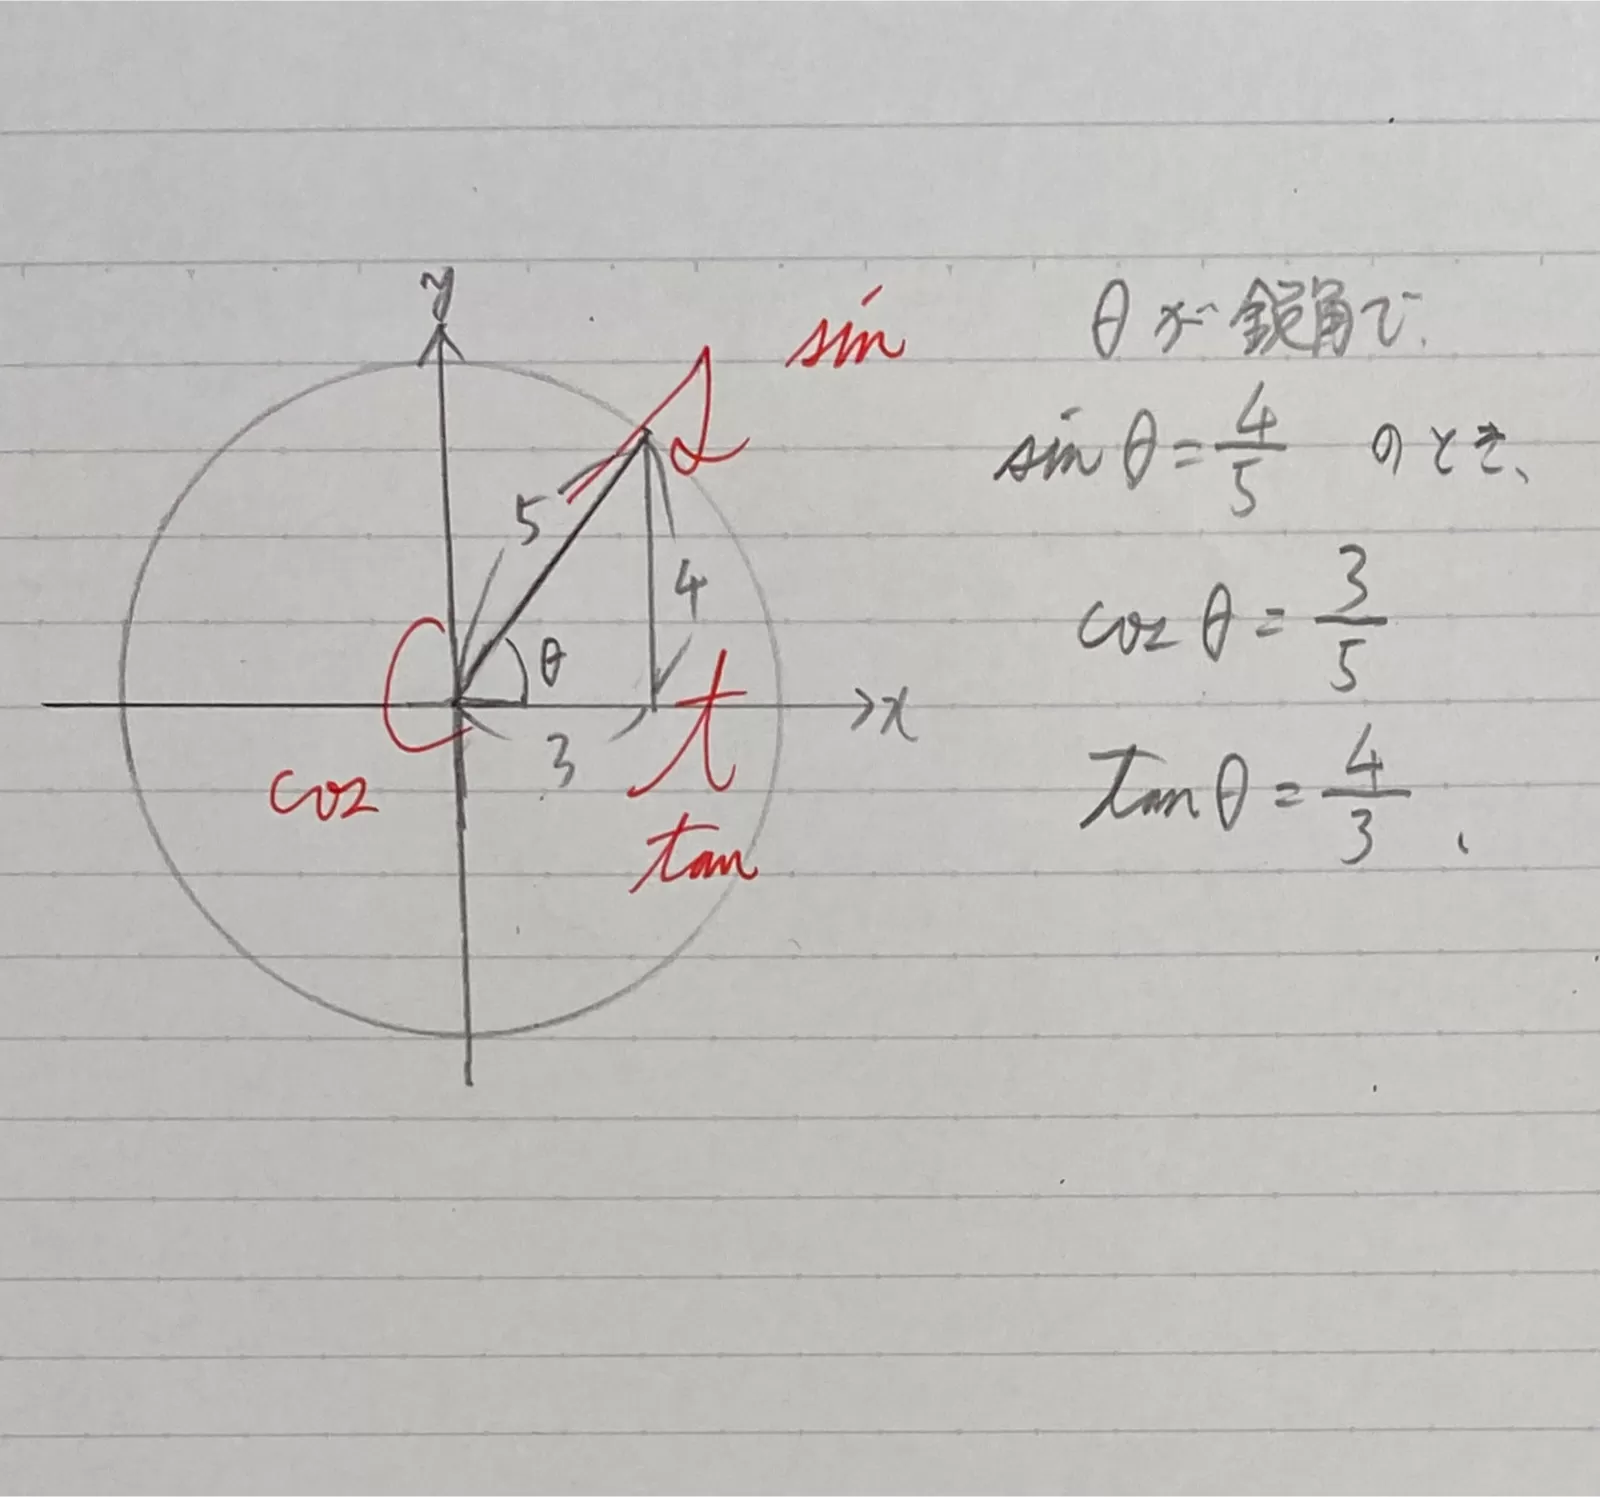 y
sin
s
5
4
θ
C
t
x
3
cos
tan
θが鋭角で、
sinθ=4/5 のとき、
cosθ=3/5
tanθ=4/3 、